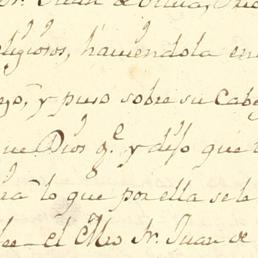 Fr. Juan de
eligiosos, haciendola en
ejo, y puso sobre su Cabe
ue Dios g.e y dijo que
ra lo que por ella se le
el Mro Fr. Juan de